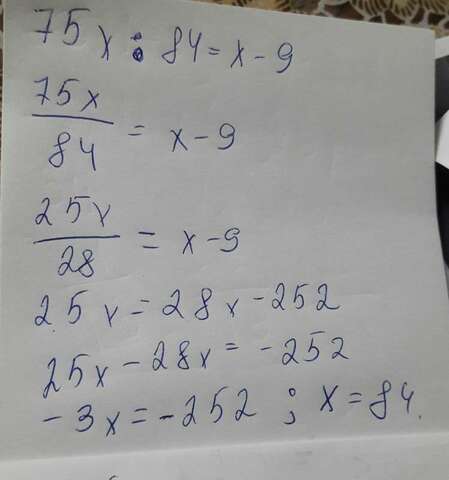 75x : 84 = x - 9
75x
84
= x - 9
25x
28
= x - 9
25x = 28x - 252
25x - 28x = -252
-3x = -252 ; x = 84.